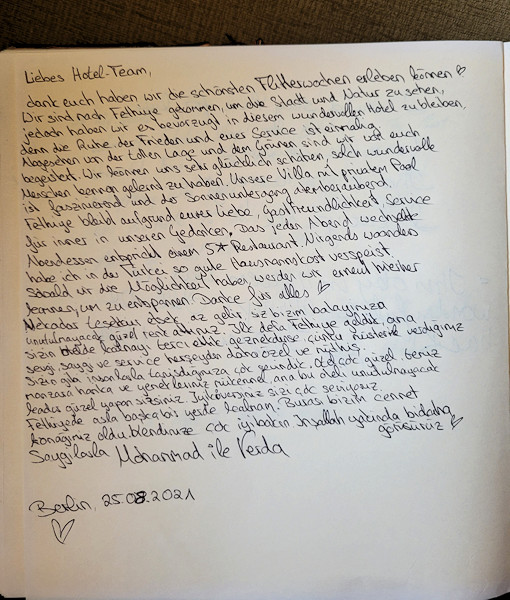 Liebes Hotel-Team,
dank euch haben wir die schönsten Flitterwochen erleben können ♡
Wir sind nach Fethiye gekommen, um die Stadt und Natur zu sehen,
jedoch haben wir es bevorzugt in diesem wundervollen Hotel zu bleiben,
denn die Ruhe, der Frieden und euer Service ist einmalig
Abgesehen von der tollen Lage und dem Grünen sind wir von euch
begeistert. Wir können uns sehr glücklich schätzen, solch wundervolle
Menschen kennengelernt zu haben. Unsere Villa mit privatem Pool
ist faszinierend und der Sonnenuntergang atemberaubend.
Fethiye bleibt aufgrund eurer Liebe, Gastfreundlichkeit, Service
für immer in unseren Gedanken. Das jeden Abend wechselte
Abendessen entspricht einem 5★ Restaurant. Nirgends woanders
habe ich in der Türkei so gute Hausmannskost verspeist.
Sobald wir die Möglichkeit haben, werden wir erneut hierher
kommen, um zu entspannen. Danke für alles ♡
Nekadar teşekkür etsek az gelir siz bizim balayımıza
unutulmayacak güzel ettiniz. Ilk defa Fethiye geldik, ama
sizin otelde kalmayı tercih ettik gezmektense, çünkü müsterilere verdiğiniz
sevgi, saygı ve service herşeyden daha özel ve
Sizin gibi insanlarla tanıştığımıza çok sevindik. Otel çok güzel, temiz
manzara harika ve yemekleriniz mükemmel, ama bu oteli unutulmayacak
kadar güzel yapan sizsiniz. Iyiki varsınız sizi çok seviyoruz.
Fethiyede asla başka bir yerde kalmam. Burası bizim cennet
konağımız oldu. Kendinize çok iyi bakın Inşallah yakında bidaha
görüşürüz ♡
Saygılarla Mohammad ile Verda
Berlin, 25.08.2021
♡